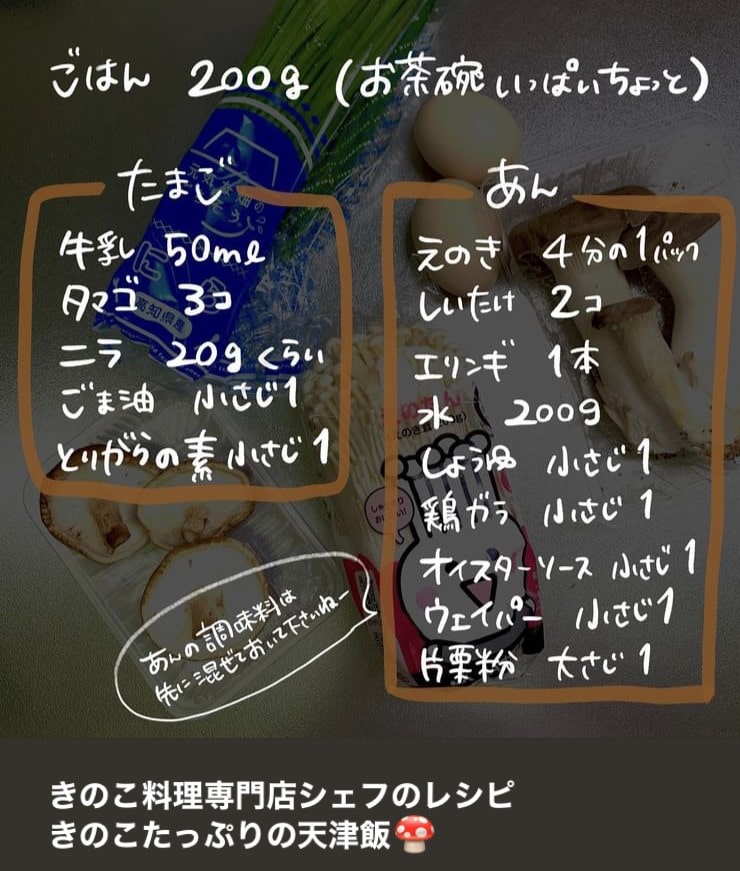 ごはん 200g (お茶碗いっぱいちょっと)
たまご
牛乳 50ml
タマゴ 3コ
ニラ 20gくらい
ごま油 小さじ1
とりがらの素 小さじ1
あん
えのき 4分の1パック
しいたけ 2コ
エリンギ 1本
水 200g
しょうゆ 小さじ1
鶏ガラ 小さじ1
オイスターソース 小さじ1
ウェイパー 小さじ1
片栗粉 大さじ1
あんの調味料は
先に混ぜておいて下さいねー
高知県産
きのこ料理専門店シェフのレシピ
きのこたっぷりの天津飯🍄